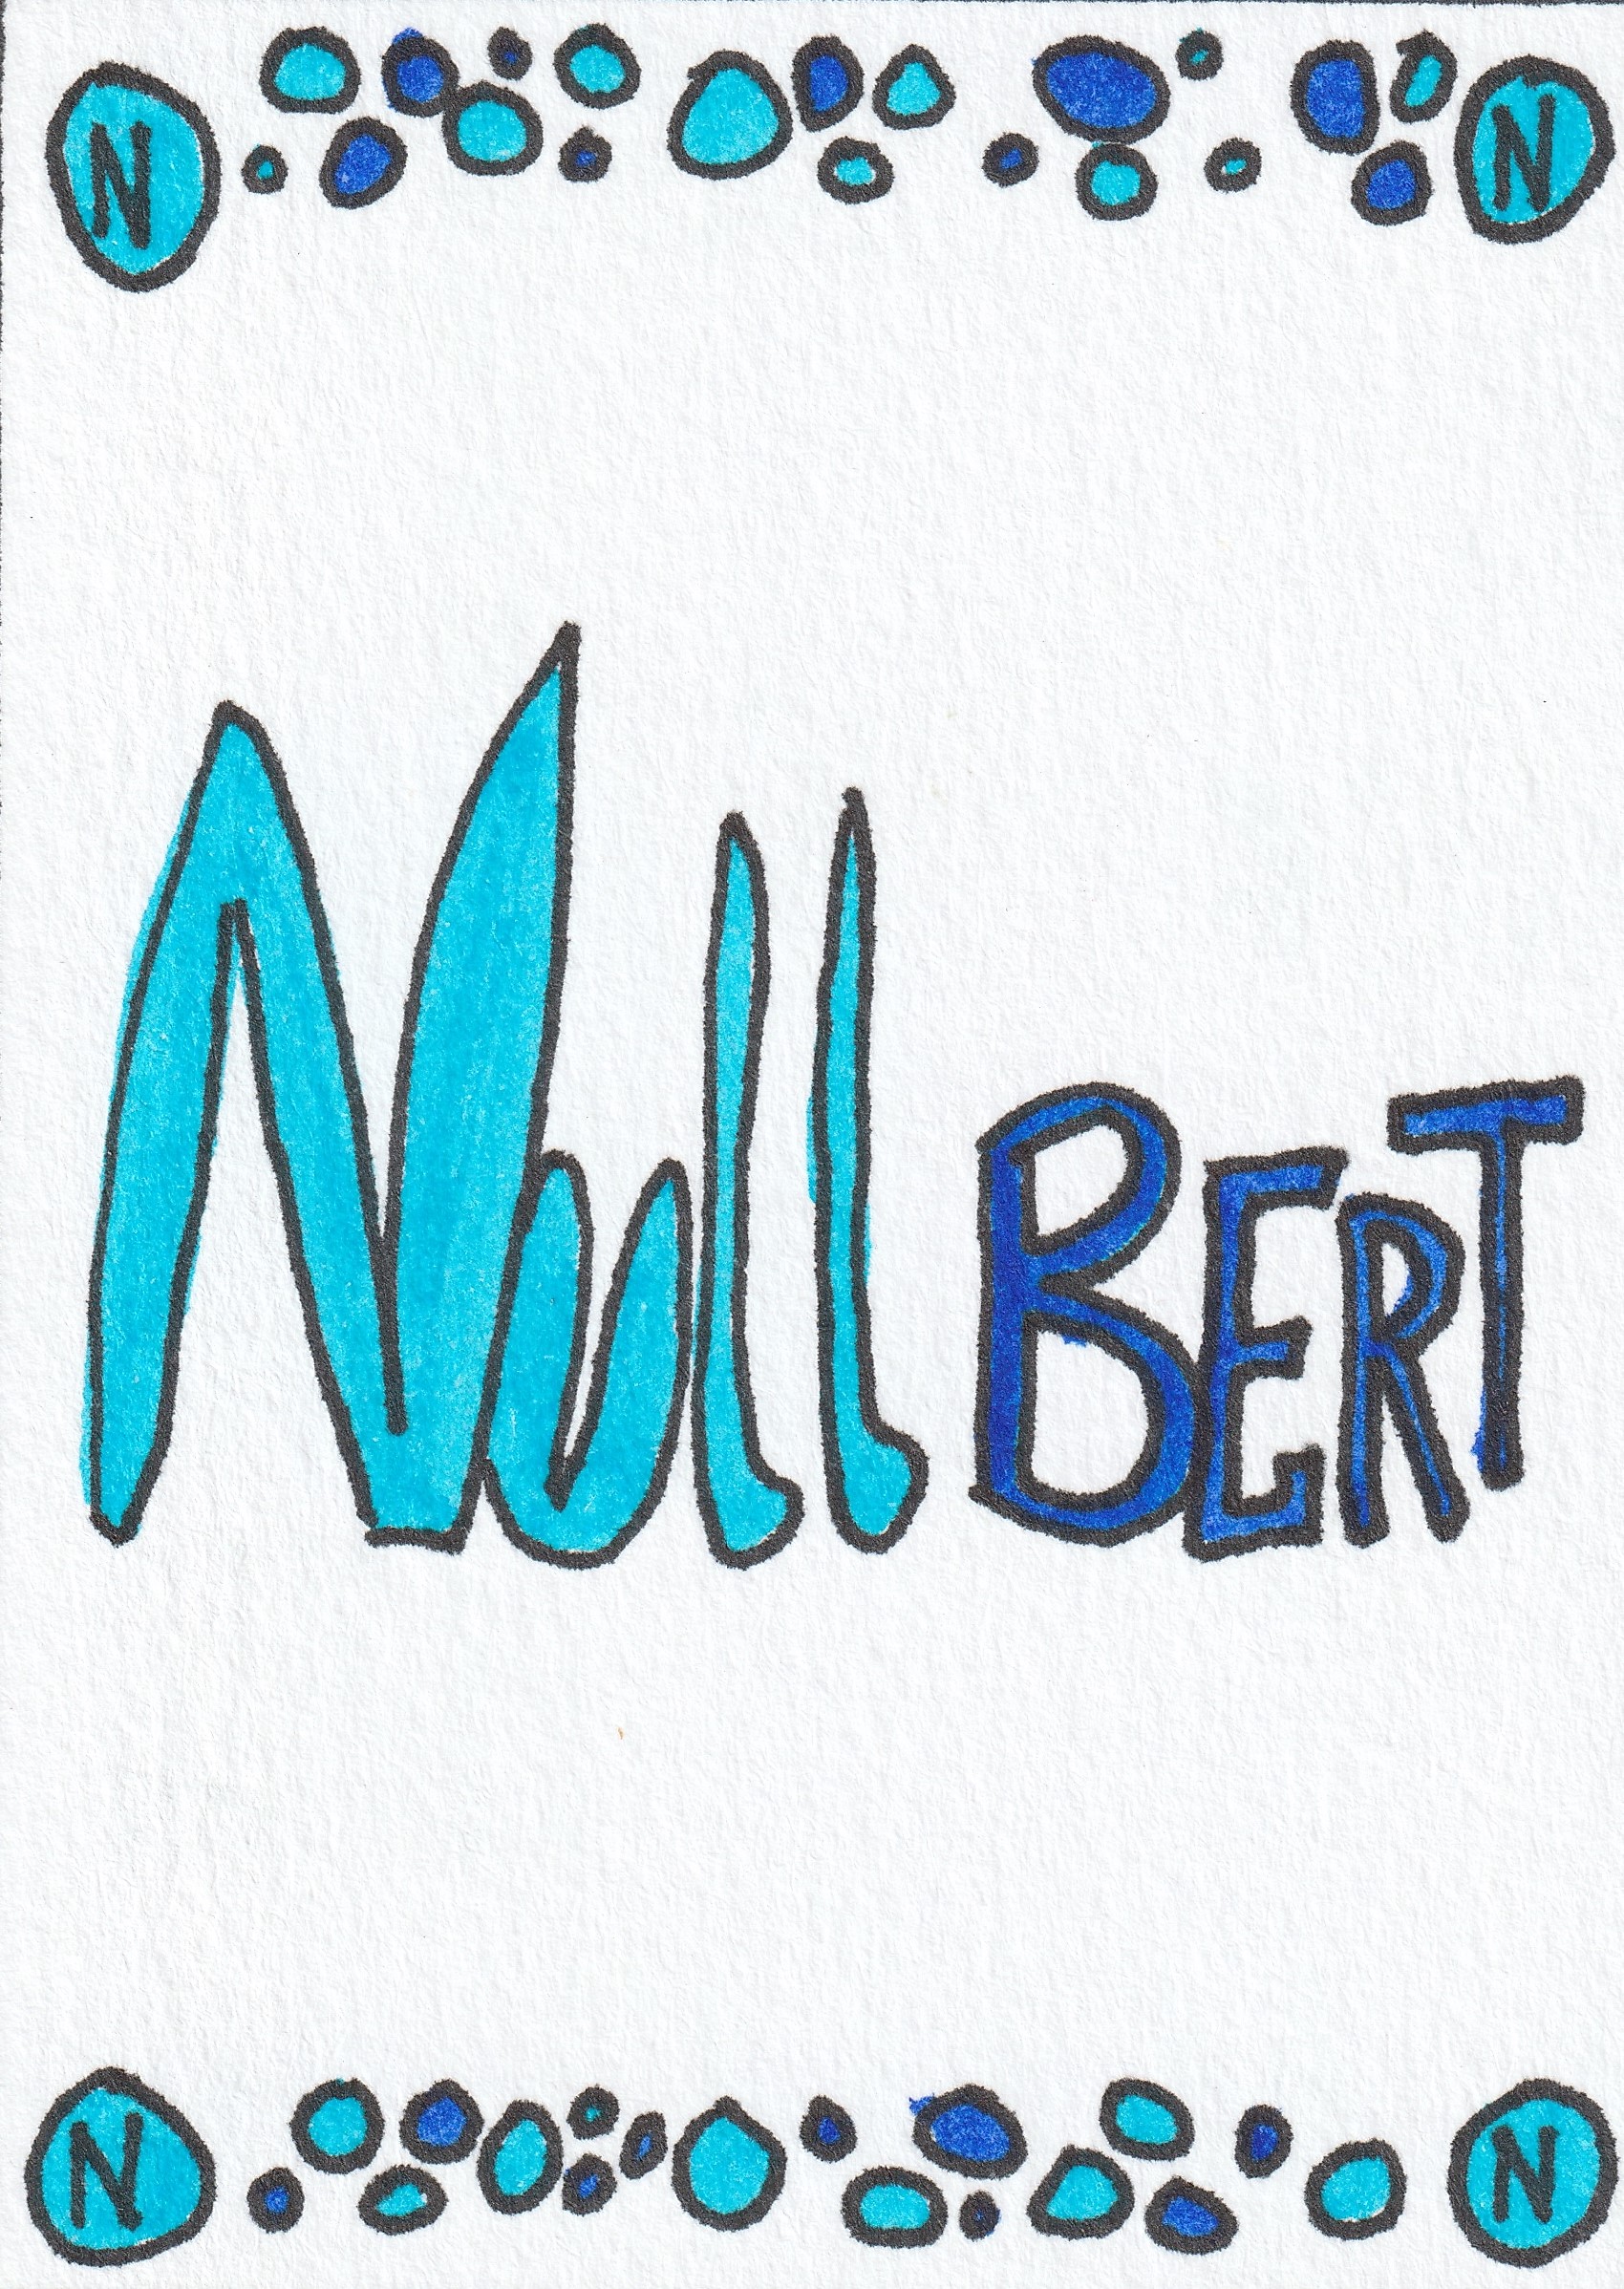 N N
Null BERT
N N